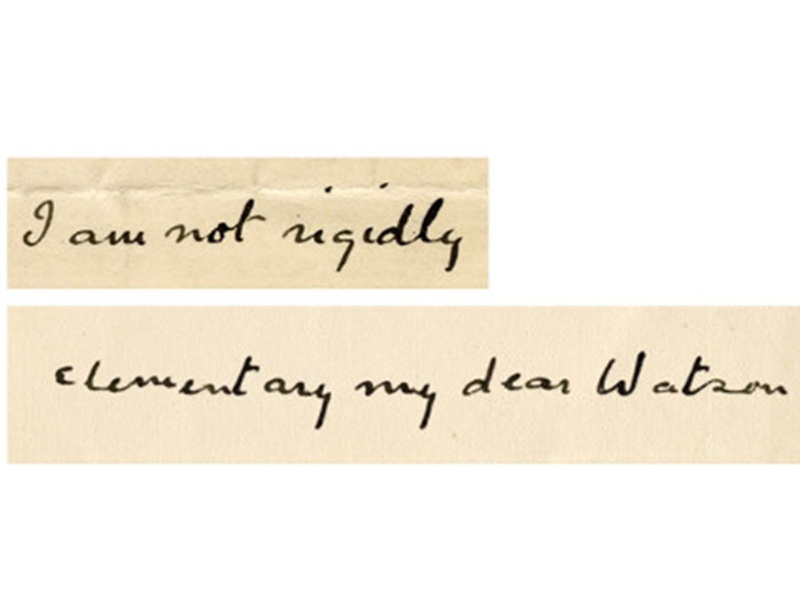 I am not rigidly
elementary my dear Watson